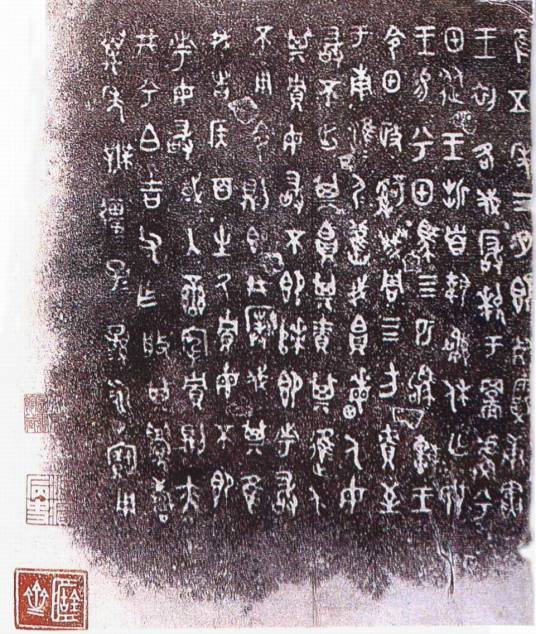 隹五年三月既死霸庚寅
王初各伐玁狁于䣙𧆨兮
甲從王折首執訊休亡敃
王易兮甲馬四匹駒車王
令甲政𤔲成周四方責至
于南淮尸舊我帛畮人毋
敢不出其帛其責其進人
其貯毋敢不即次即市敢
不用令則即井撲伐其隹
我者侯百生氒貯毋不即
市毋敢或入蠻宄貯則亦
井兮白吉父乍般其眉壽
萬年無疆子子孫孫永寶用